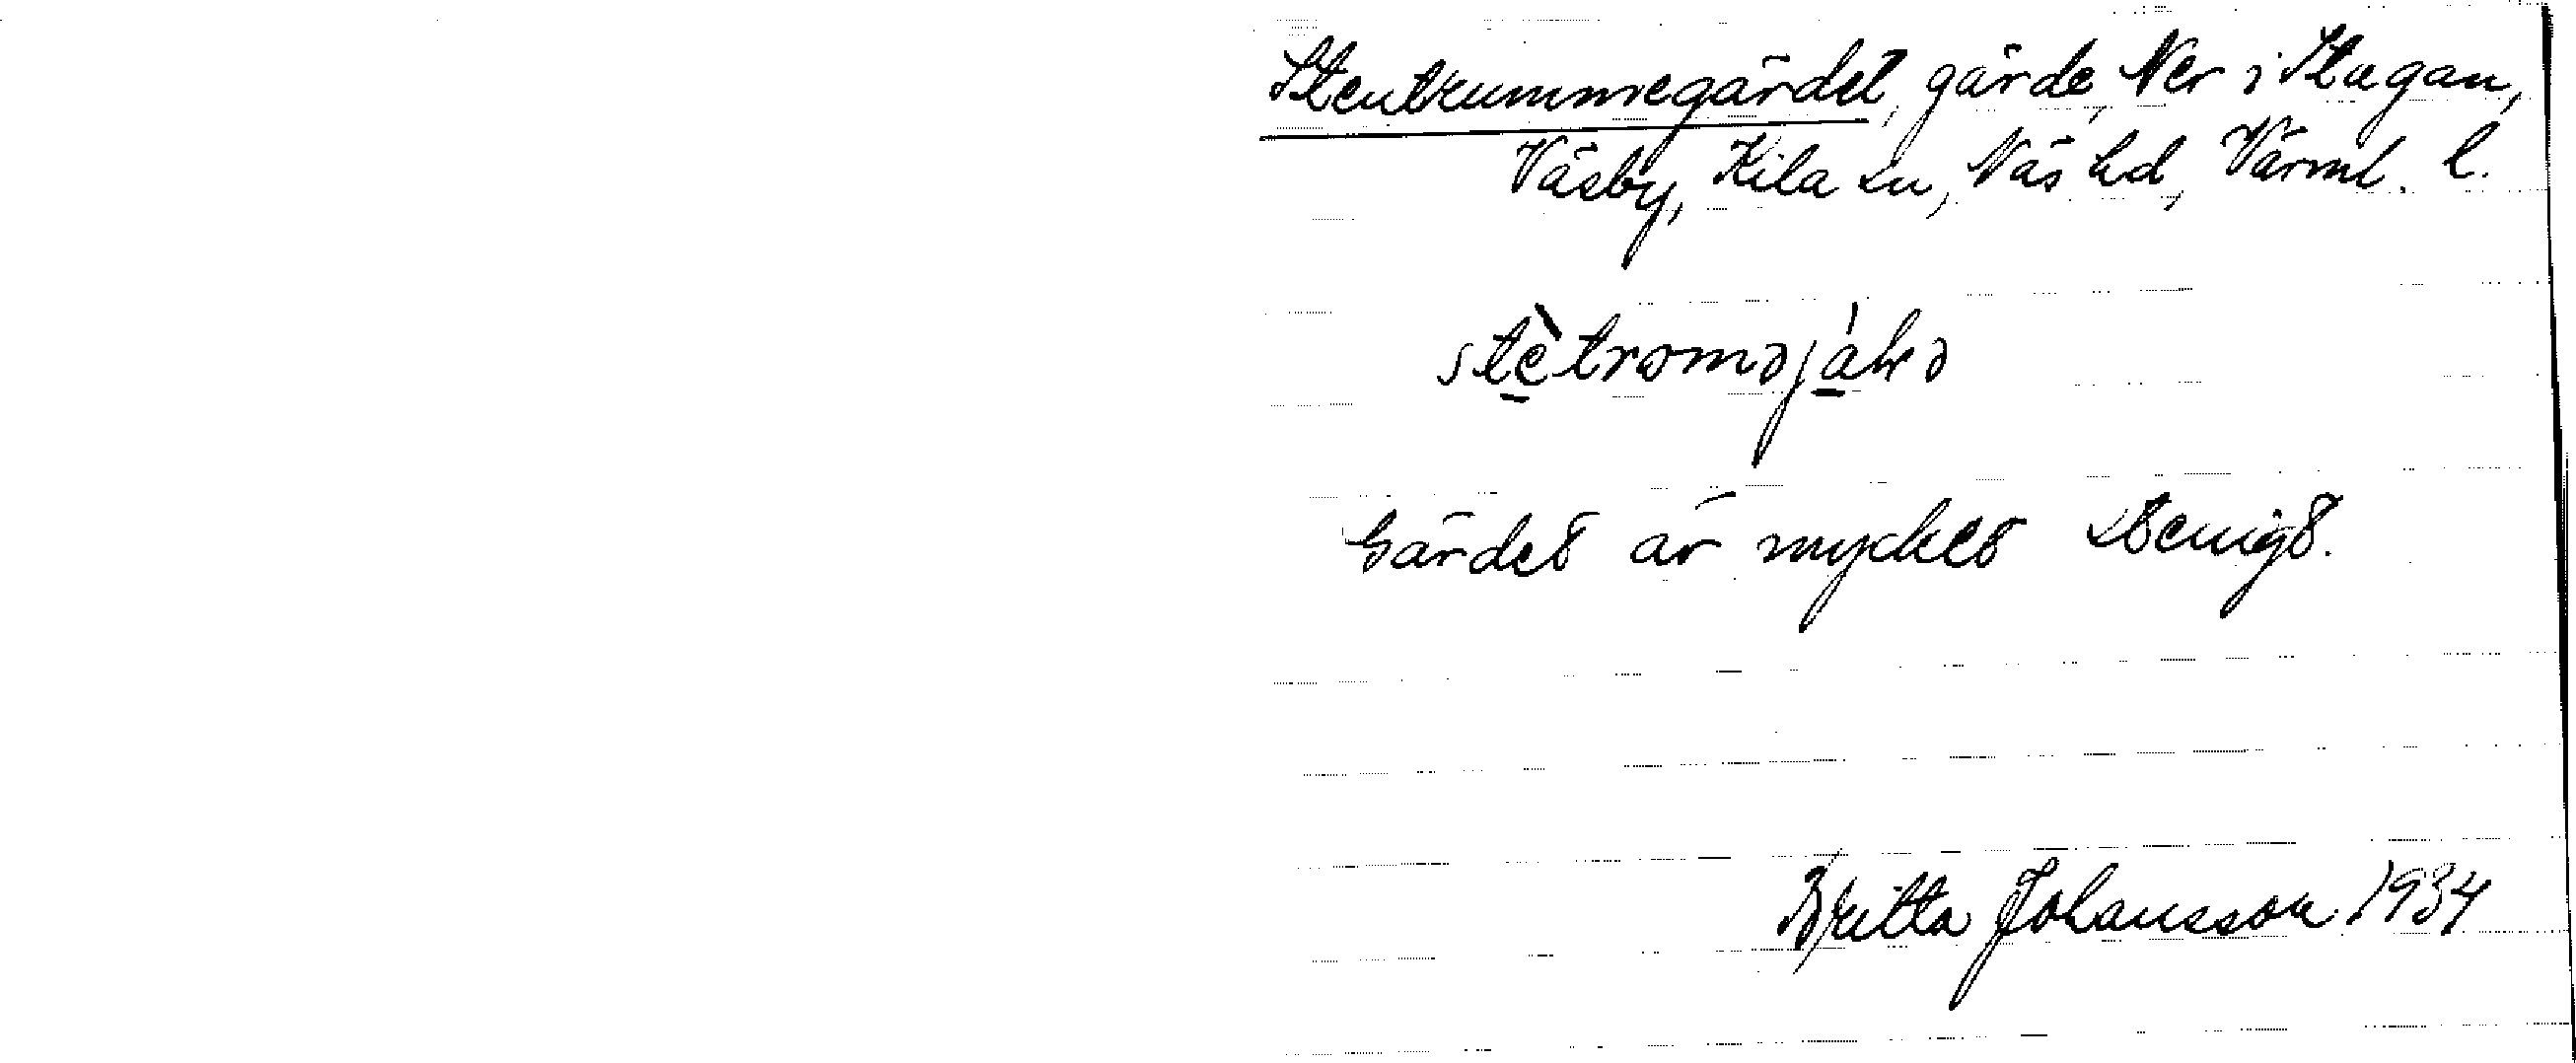 Stentrummegärdet, gärde, Ner i Hagan,
Väsby, Kila sn, Näs hd, Värml. l.
Gärdet är mycket stenigt.
Britta Johansson 1934